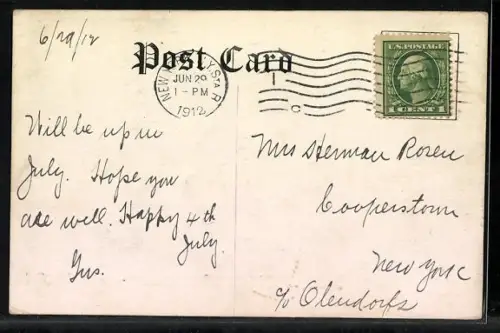 6/29/12
Post Card
NEW YORK, N.Y. STA. R
JUN 29
1-PM
1912
C
U.S. POSTAGE
1 CENT 1
Will be up in
July. Hope you
are well. Happy 4th
July.
Gus.
Mrs Herman Rosen
Cooperstown
New York
c/o Olendorfs